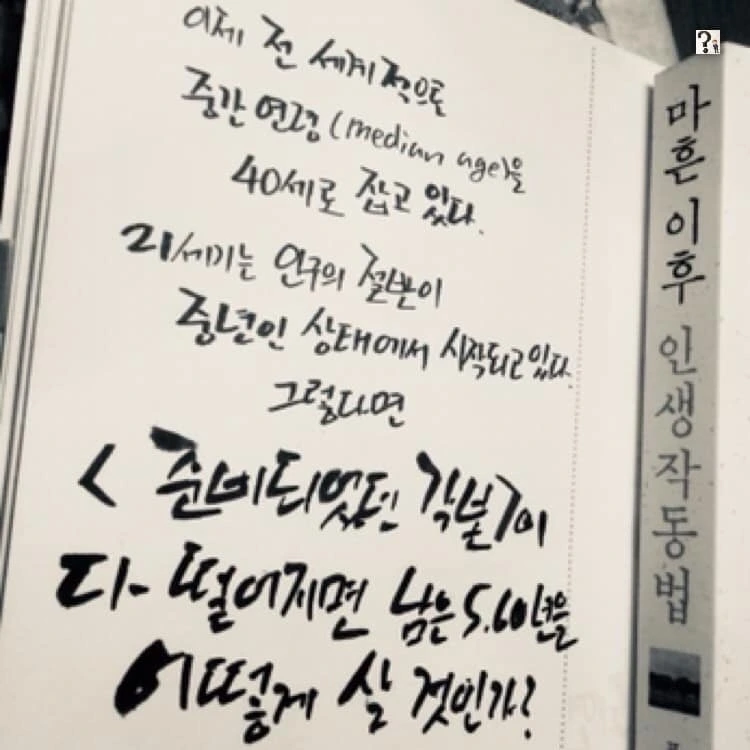 이제 전 세계적으로
중간 연령 (median age)을
40세로 잡고 있다.
21세기는 인구의 절반이
중년인 상태에서 시작되고 있다.
그렇다면
< 준비되었던 각본>이
다 떨어지면 남은 5.60년을
어떻게 살 것인가?
마흔 이후 인생작동법